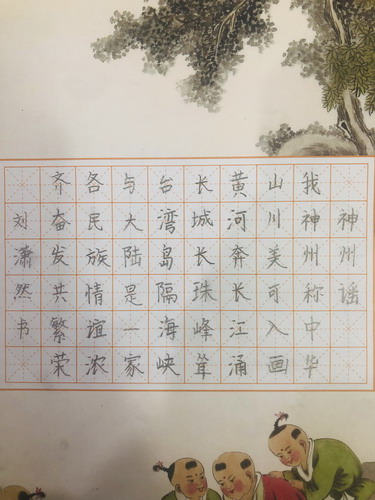 神州谣
我神州称中华
山川美可入画
黄河奔长江涌
长城长珠峰耸
台湾岛隔海峡
与大陆是一家
各民族情谊浓
齐奋发共繁荣
刘潇然书